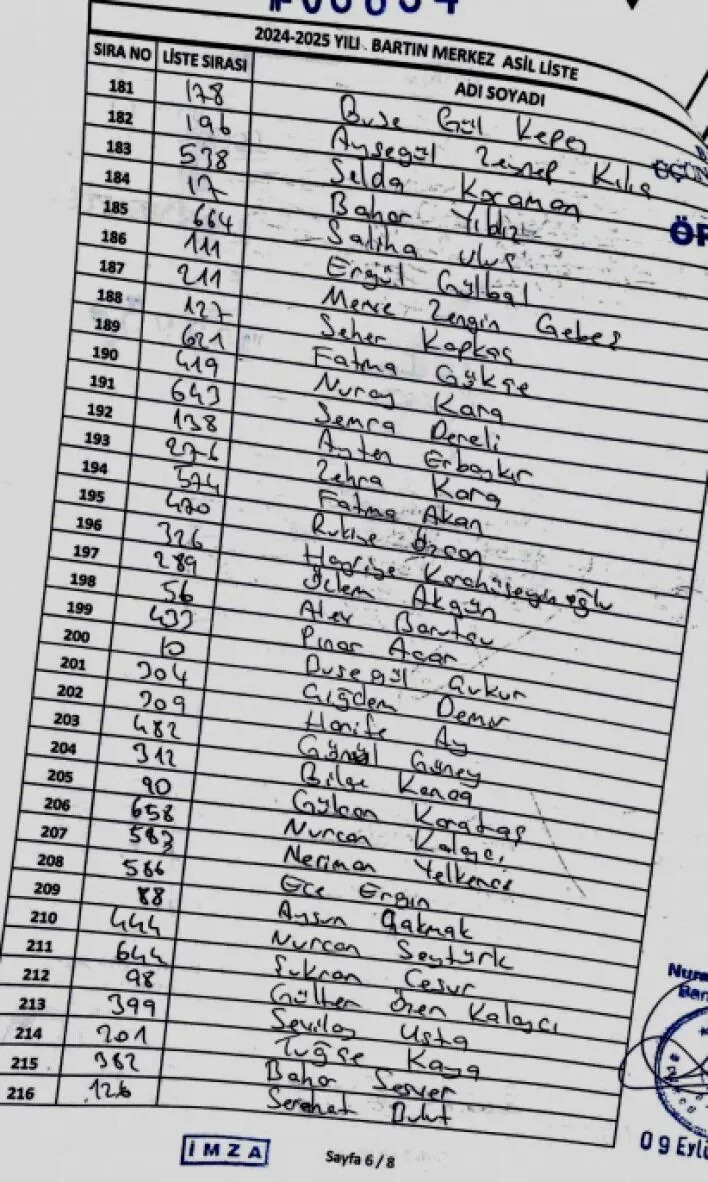 2024-2025 YILI BARTIN MERKEZ ASİL LİSTE
SIRA NO LİSTE SIRASI ADI SOYADI
181 178 Buse Gül Keper
182 196 Ayşegül Zeynep Kılıç
183 538 Selda Karaman
184 17 Bahar Yıldız
185 664 Saliha Uluş
186 111 Ergül Gülbal
187 211 Merve Zengin Gebeş
188 127 Seher Kapkaş
189 621 Fatma Gökçe
190 419 Nuray Kara
191 643 Semra Dereli
192 138 Ayten Erbaykır
193 276 Zehra Kara
194 574 Fatma Akan
195 470 Rukiye Özcan
196 326 Hayriye Karahüseyinoğlu
197 289 Özlem Akgün
198 56 Alev Barutçu
199 433 Pınar Acar
200 10 Busegül Çukur
201 304 Çiğdem Demir
202 309 Hanife Ay
203 482 Güngül Güney
204 312 Bilge Kanaq
205 90 Gülcan Karataş
206 658 Nurcan Kalaycı
207 583 Neriman Yelkenci
208 566 Ece Ergin
209 88 Aysun Çakmak
210 444 Nurcan Seytürk
211 644 Şükran Cesur
212 98 Gülten Ören Kalaycı
213 399 Sevilay Usta
214 201 Tuğçe Kaya
215 362 Bahar Server
216 126 Serahat Bulut
İMZA
Sayfa 6 / 8
09 Eylü